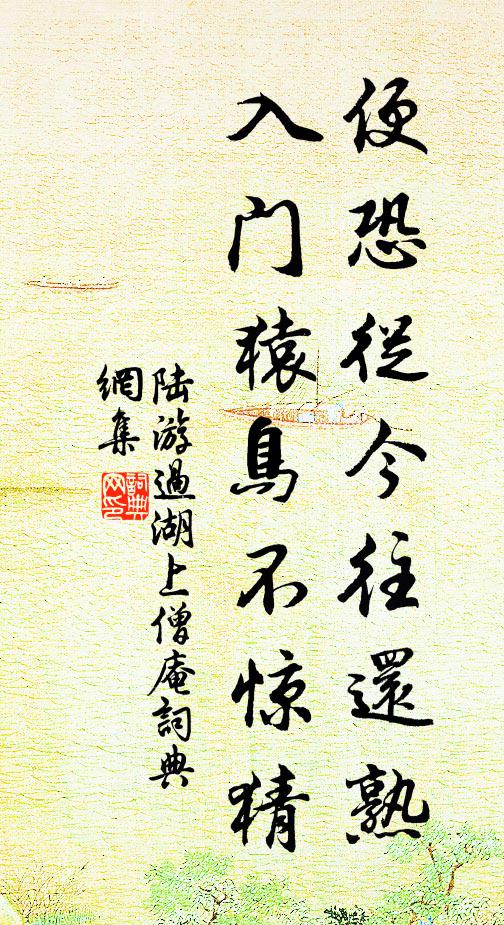 便恐從今往還熟
入门猿鳥不惊猜
陆游過湖上僧庵詞典
網集
詞典
网印